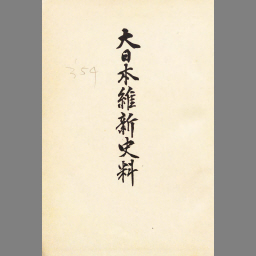 大日本維新史料
354